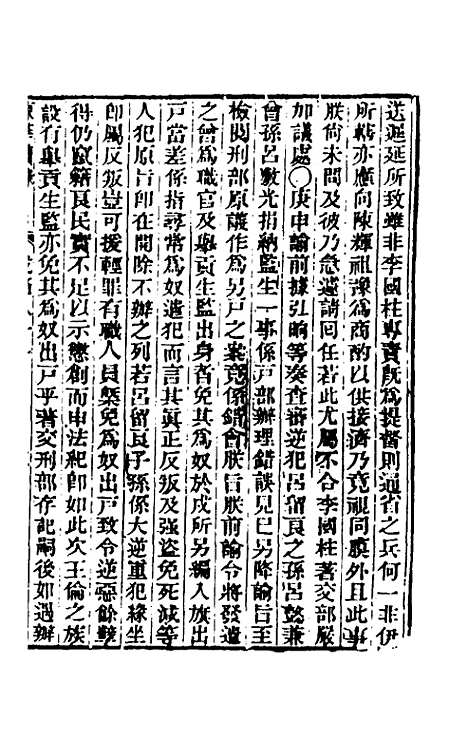 送遲延所致雖非李國柱專責旣為提督則通省之兵何一非伊
所轄亦應向陳輝祖豫為商酌以供接濟乃竟視同膜外且此事
朕尚未問及彼乃急遽請回任若此尤屬不合李國柱著交部嚴
加議處○庚申諭前據弘晌等奏查審逆犯呂留良之孫呂懿兼
曾孫呂敷光捐納監生一事係戶部辦理錯誤見已另降諭旨至
檢閱刑部原議作為另戶之案竟係錯會朕旨朕前諭令將發遣
之曾為職官及舉貢生監出身者免其為奴於戍所另編入旗出
戶當差係指尋常為奴遣犯而言其眞正反叛及强盜免死減等
人犯原旨卽在開除不辦之列若呂留良子孫係大逆重犯緣坐
卽屬反叛豈可援輕罪有職人員槩免為奴出戶致令逆惡餘孽
得仍竄籍良民實不足以示懲創而申法紀卽如此次王倫之族
設有舉貢生監亦免其為奴出戶乎著交刑部存記嗣後如遇辦